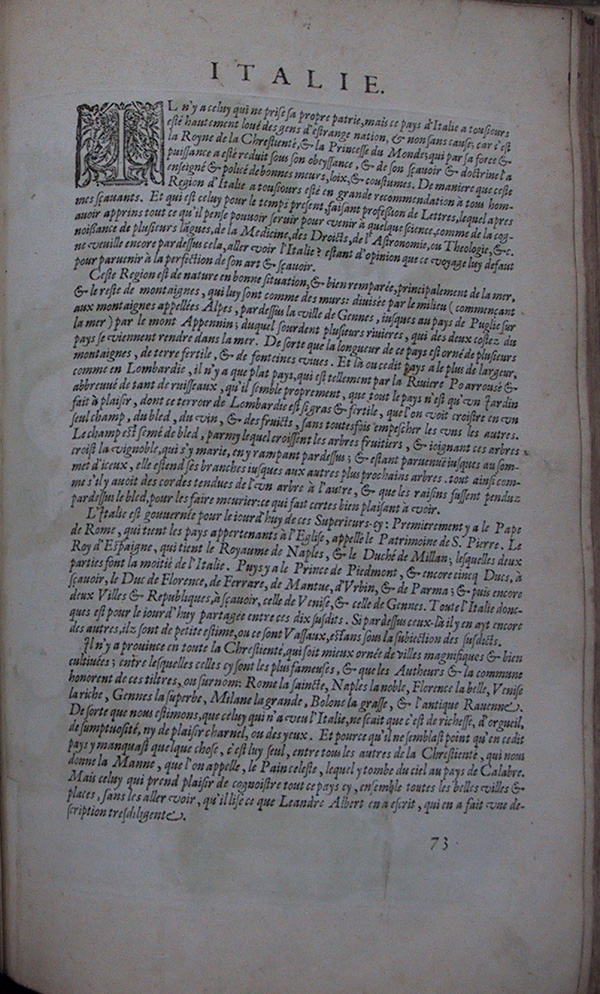 ITALIE.
IL n'y a celuy qui ne prise sa propre patrie, mais ce pays d'Italie a tousiours
esté hautement loué des gens d'estrange nation, & non sans cause, car c'est
la Royne de la Chrestienté, & la Princesse du Monde; qui par sa force &
puissance a esté reduit sous son obeyssance, & de son sçauoir & doctrine l'a
enseigné & policé de bonnes meurs, loix, & coustumes. De maniere que ceste
Region d'Italie a tousiours esté en grande recommendation à tous hom-
mes sçauants. Et qui est celuy pour le temps present, faisant profession de Lettres, lequel apres
auoir apprins tout ce qu'il pense pouuoir seruir pour venir à quelque science, comme de la cog-
noißance de plusieurs lãgues, de la Medicine, des Droicts, de l'Astronomie, ou Theologie, &c.
ne veuille encore par dessus cela, aller voir l'Italie? estant d'opinion que ce voyage luy defaut
pour paruenir à la perfiction de son art & sçauoir.
Ceste Region est de nature en bonne situation, & bien remparée, principalement de la mer,
& le reste de montaignes, qui luy sont comme des murs: diuisée par le milieu (commençant
aux montaignes appellées Alpes, par dessus la ville de Gennes, iusques au pays de Puglie sur
la mer) par le mont Appennin; duquel sourdent plusieurs riuieres, qui des deux costez du
pays se viennent rendre dans la mer. De sorte que la longueur de ce pays est orné de plusieurs
montaignes, de terre fertile, & de fonteines viues. Et là ou cedit pays a le plus de largeur,
comme en Lombardie, il n'y a que plat pays, qui est tellement par la Riuiere Po arrousé &
abbreuué de tant de ruisseaux, qu'il semble proprement, que tout le pays n'est qu'vn Iardin
fait à plaisir, dont ce terroir de Lombardie est si gras & fertile, que l'on voit croistre en vn
seul champ, du bled, du vin, & des fruicts, sans toutesfois empescher les vns les autres.
Le champ est semé de bled, parmy lequel croissent les arbres fruitiers, & ioignant ces arbres
croist la vignoble, qui s'y marie, en y rampant par dessus; & estant paruenuë iusques au som-
met d'iceux, elle estend ses branches iusques aux autres plus prochains arbres. tout ainsi com-
me s'il y auoit des cordes tendues de l'vn arbre à l'autre, & que les raisins fussent penduz
par dessus le bled, pour les faire meurier: ce qui fait certes bien plaisant à voir.
L'Italie est gouuernée pour le iourd'huy de ces Superieurs-cy: Premierement y a le Pape
de Rome, qui tient les pays appertenants à l'Eglise, appellé le Patrimoine de S. Pierre. Le
Roy d'Espaigne, qui tient le Royaume de Naples, & le Duché de Millan; lesquelles deux
parties font la moitié de l'Italie. Puys y a le Prince de Piedmont, & encore cincq Ducs, à
sçauoir, le Duc de Florence, de Ferrare, de Mantue, d'Vrbin, & de Parma; & puis encore
deux Villes & Republiques, à sçauoir, celle de Venise, & celle de Gennes. Toute l'Italie donc-
ques est pour le iourd'huy partagée entre ces dix susdits. Si par dessus ceux-là il y en ayt encore
des autres, ilz sont de petite estime, ou ce sont Vassaux, estans sous la subiection des susdicts.
Il n'y a prouince en toute la Chrestienté, qui soit mieux ornée de villes magnifiques & bien
cultiuées; entre lesquelles celles cy sont les plus fameuses, & que les Autheurs & la commune
honorent de ces tiltres, ou surnoms: Rome la saincte, Naples la noble, Florence la belle, Venise
la riche, Gennes la superbe, Milane la grande, Bolone la grasse, & l'antique Rauenne.
De sorte que nous estimons, que celuy qui n'a veu l'Italie, ne scait que c'est de richesse, d'orgueil,
de sumptuosité, ny de plaisir charnel, ou des yeux. Et pource qu'il ne semblast point qu'en cedit
pays y manquast quelque chose, c'est luy seul, entre tous les autres de la Chrestienté, qui nous
donne la Manne, que l'on appelle, le Pain celeste, lequel y tombe du ciel au pays de Calabre.
Mais celuy qui prend plaisir de cognoistre tout ce pays cy, ensemble toutes les belles villes &
places, sans les aller voir, qu'il lise ce que Leandre Albert en a escrit, qui en a fait vne de-
scription tresdiligente.
73